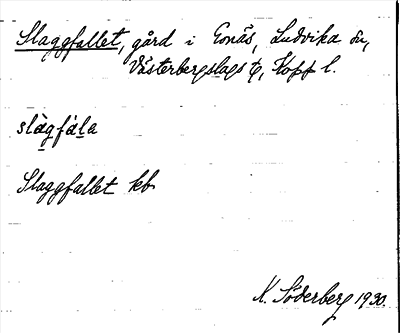 Slaggfallet, gård i Gonäs, Ludvika sn,
Västerbergslags t, Kopp l.
slàgfàla
Slaggfallet kb
K. Söderberg 1930.